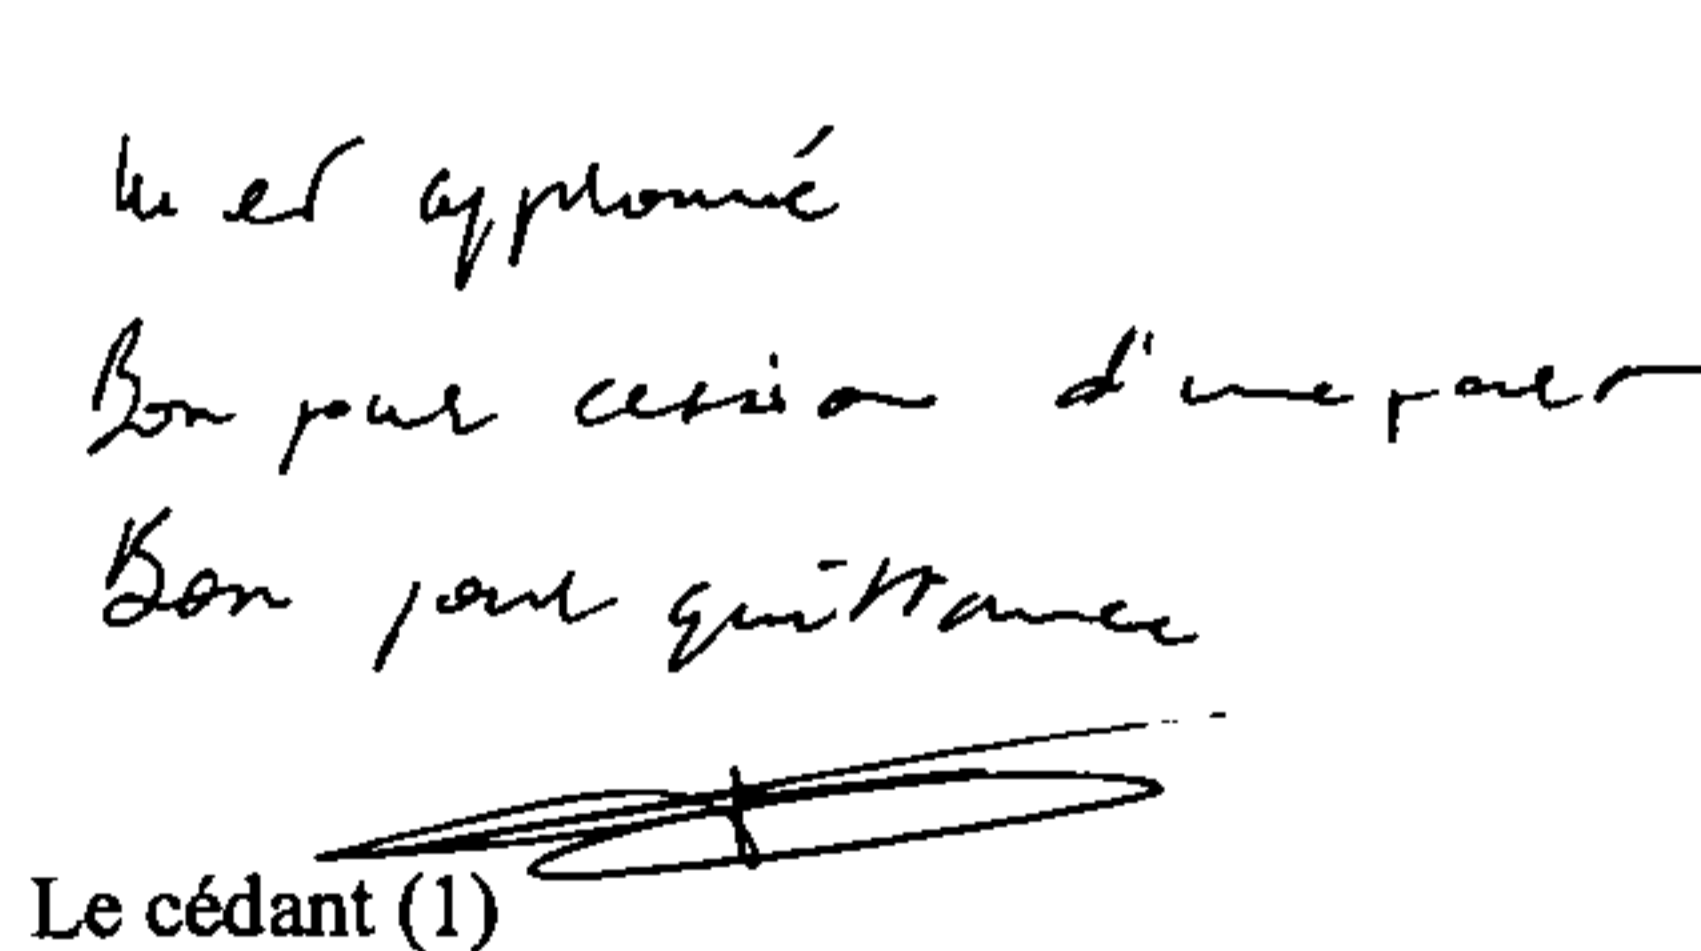 lu et approuvé
Bon pour cession d'une part
Bon pour quittance
Le cédant (1)